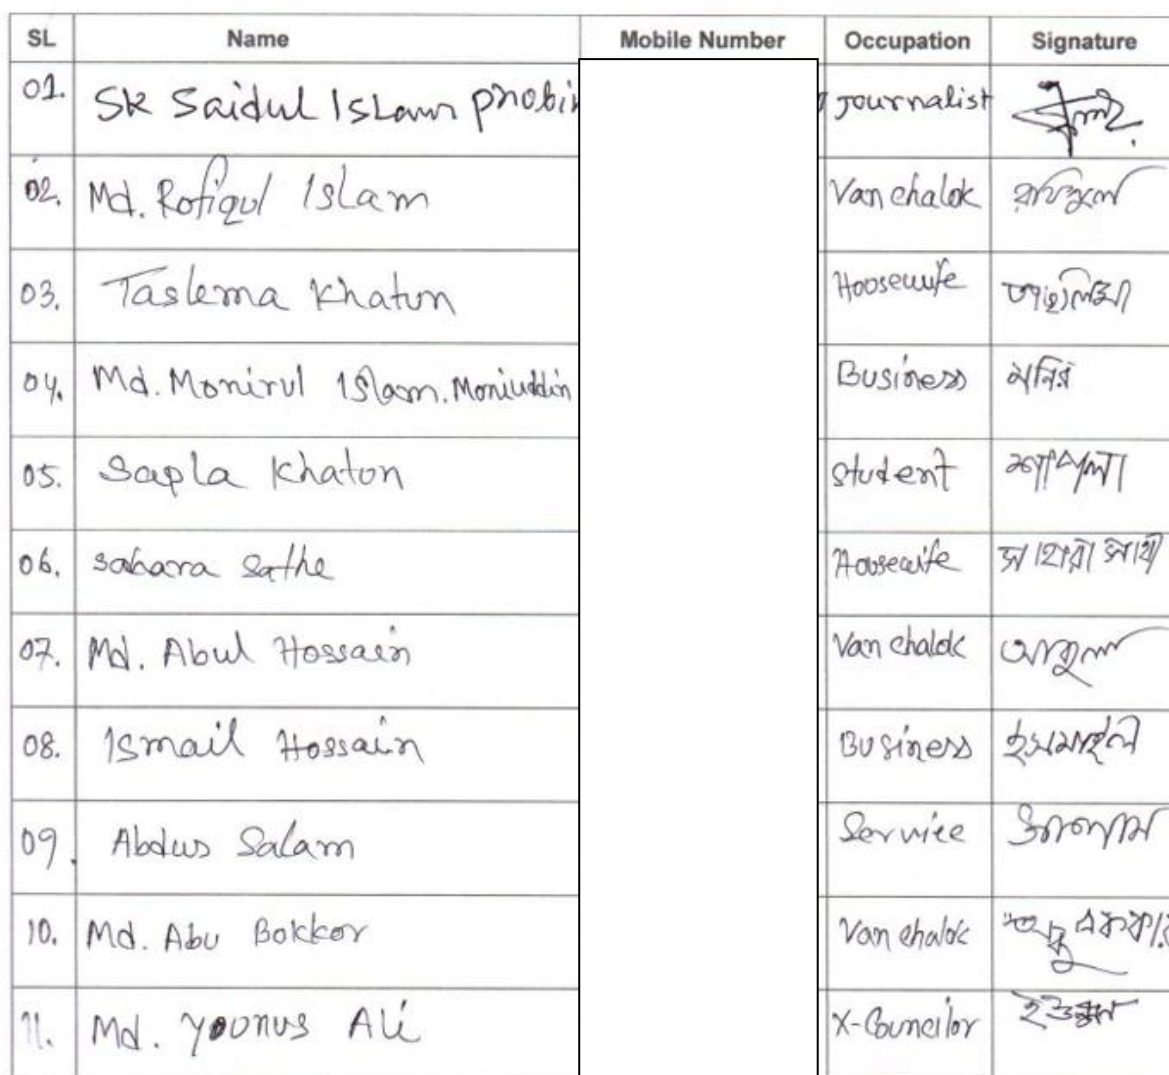 SL Name Mobile Number Occupation Signature
01. SK Saidul Islam probin Journalist
02. Md. Rofiqul Islam Van chalok রফিকুল
03. Taslema Khatun Housewife তাছলিমা
04. Md. Monirul Islam. Moniuddin Business মনির
05. Sapla Khaton student শাপলা
06. sahara sathe Housewife সাহারা সাথী
07. Md. Abul Hossain Van chalok আবুল
08. Ismail Hossain Business ইসমাইল
09. Abdus Salam Service সালাম
10. Md. Abu Bokkor Van chalok
11. Md. Younus Ali X-Councilor ইউনুস